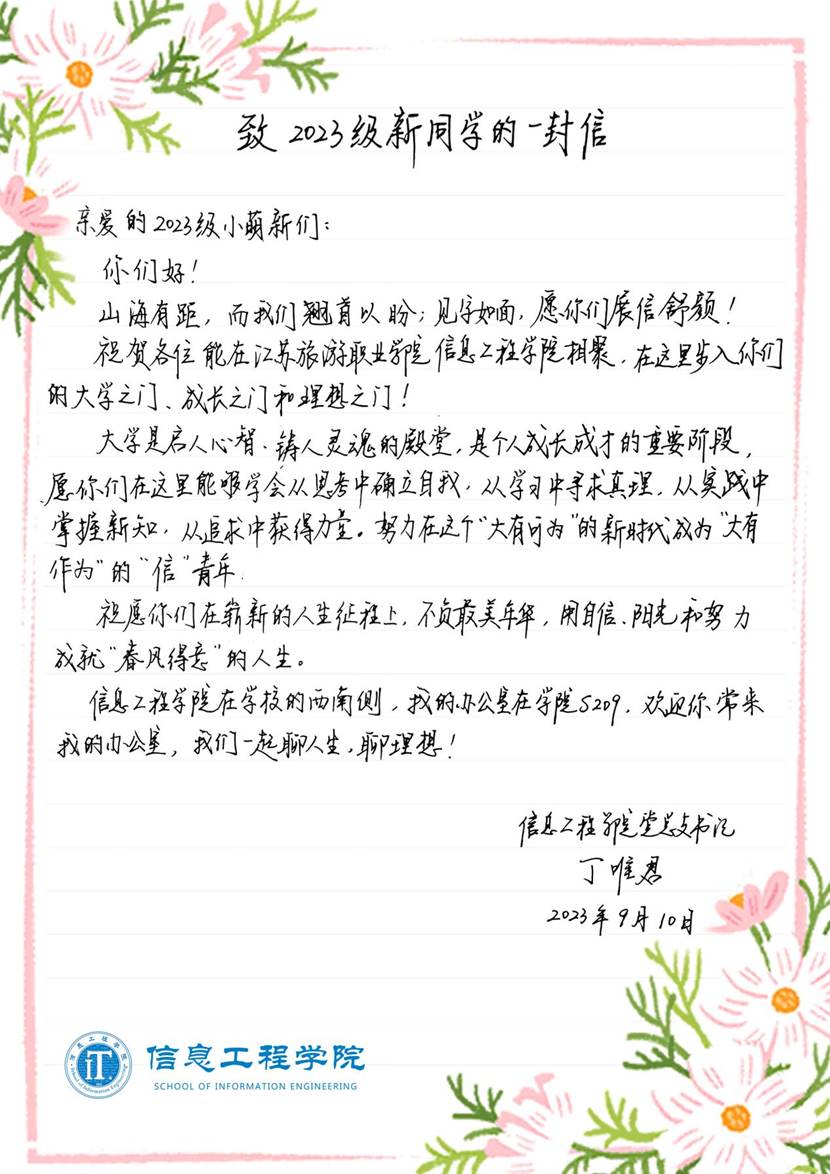 致2023级新同学的一封信
亲爱的2023级小萌新们：
你们好！
山海有距，而我们翘首以盼；见字如面，愿你们展信舒颜！
祝贺各位能在江苏旅游职业学院信息工程学院相聚，在这里步入你们
的大学之门、成长之门和理想之门！
大学是启人心智、铸人灵魂的殿堂，是个人成长成才的重要阶段，
愿你们在这里能够学会从思考中确立自我，从学习中寻求真理，从实践中
掌握新知，从追求中获得力量。努力在这个“大有可为”的新时代成为“大有
作为”的“信”青年.
祝愿你们在崭新的人生征程上，不负最美年华，用自信、阳光和努力
成就“春风得意”的人生。
信息工程学院在学校的西南侧，我的办公室在学院S209，欢迎你常来
我的办公室，我们一起聊人生，聊理想！
信息工程学院党总支书记
丁唯君
2023年9月10日
信息工程学院
SCHOOL OF INFORMATION ENGINEERING